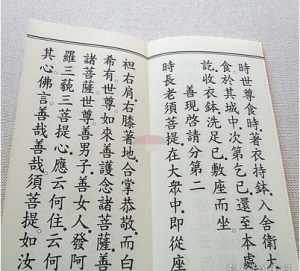 時世尊食時。著衣持鉢。入舍衛大
食於其城中。次第乞已。還至本處
訖。收衣鉢。洗足已。敷座而坐。
善現啓請分第二
時長老須菩提。在大眾中。即從座
袒右肩。右膝著地。合掌恭敬。而白
希有世尊。如來善護念諸菩薩。善
諸菩薩。世尊。善男子。善女人。發阿
羅三藐三菩提心。應云何住。云何
其心。佛言。善哉善哉。須菩提。如汝